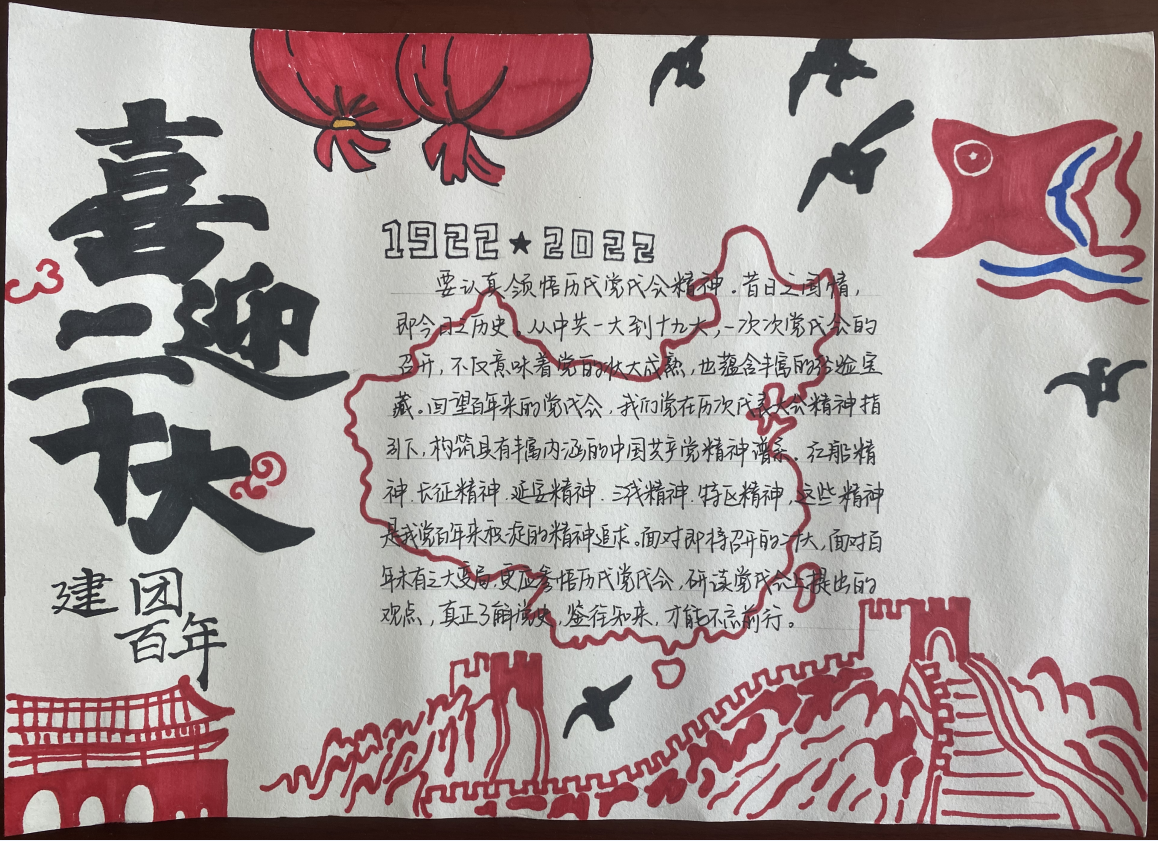 喜迎
二十大
建团
百年
1922★2022
要认真领悟历代党代会精神.昔日之国情,
即今日之历史.从中共一大到十九大,一次次党代会的
召开,不仅意味着党的壮大成熟,也蕴含丰富的经验宝
藏。回望百年来的党代会,我们党在历次代表大会精神指
引下,构筑具有丰富内涵的中国共产党精神谱系.红船精
神.长征精神.延安精神.三线精神.特区精神,这些精神
是我党百年来永恒的精神追求。面对即将召开的二十大,面对百
年未有之大变局,更应参悟历代党代会,研读党代会上提出的
观点,真正了解党史,鉴往知来,才能不忘前行。